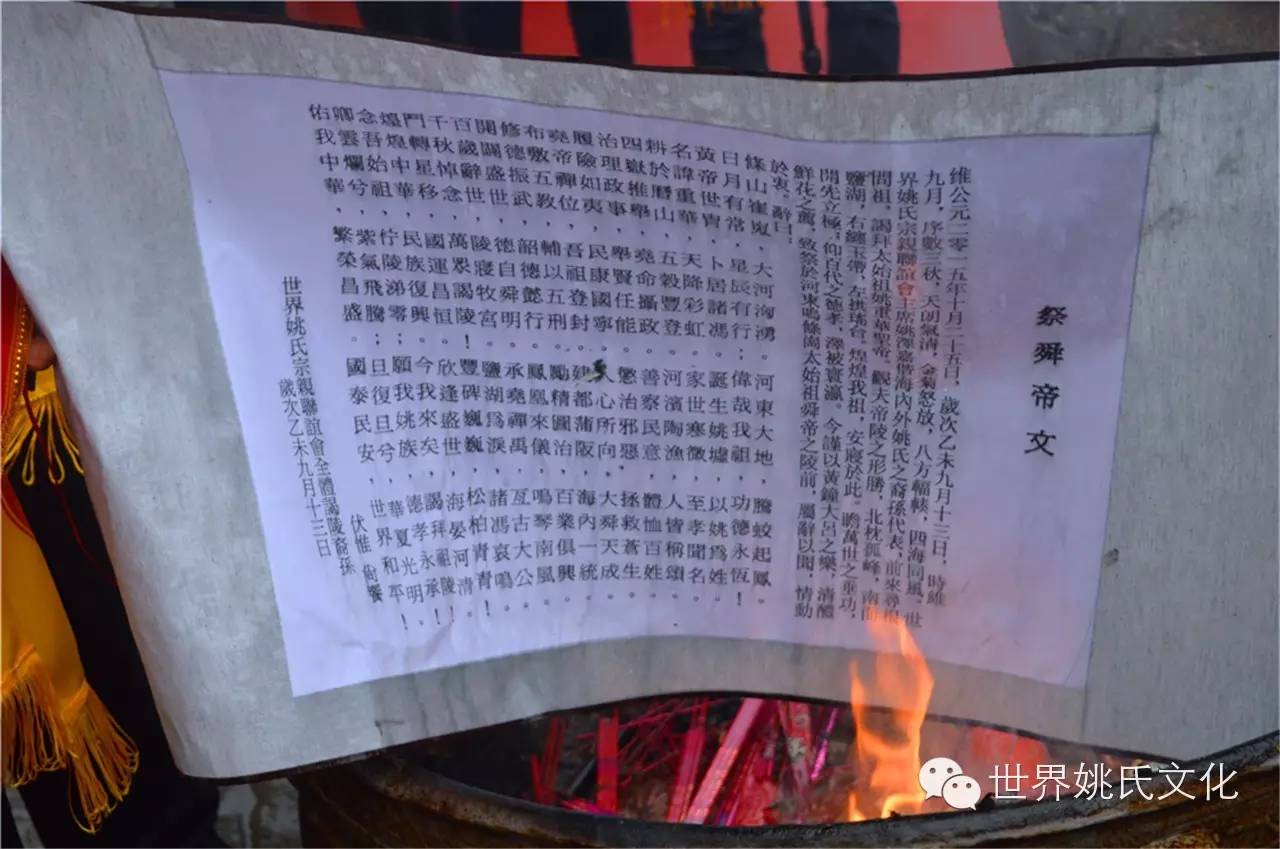 祭舜帝文
維公元二零一五年十月二十五日,歲次乙未九月十三日,時維
九月,序數三秋,天朗氣清,金菊怒放,八方幅輳,四海同風。世
界姚氏宗親聯誼會主席姚澤嘉偕海內外姚氏之裔孫代表,前來尋根
問祖,謁拜太始祖姚重華聖帝。觀夫帝陵之形勝,北枕孤峰,南面
鹽湖,右纏玉帶,左拱瑤台。煌煌我祖,安寢於此。瞻萬世之垂功,
開先立極;仰百代之德孝,澤被寰瀛。今謹以黃鐘大呂之樂,清醴
鮮花之薦,致祭於河東鳴條崗太始祖舜帝之陵前,屬辭以聞,情動
於衷。辭曰:
條山崔嵬,大河洶湧。河東大地,騰蛟起鳳。
日月有常,星辰有行;偉哉我祖,功德永恆!
黃帝世胄,卜居諸馮;誕生姚墟,以姚為姓。
名諱重華,天降彩虹。家世寒微,至孝聞名。
耕於曆山,五穀豐登。河濱陶漁,人皆稱頌。
四嶽推舉,堯命攝政。善察民意,體恤百姓。
治理政事,舉賢任能。懲治邪惡,拯救蒼生。
履險如夷,民康國寧。人心所向,大舜天成。
堯帝禪位,吾祖登封。建都蒲阪,海內一統。
布敷五教,輔以五刑。勵精圖治,百業俱興。
修德振武,韶德懿行。鳳凰來儀,鳴琴南風。
開闢盛世,德自舜明。承堯禪禹,亙古大公。
百歲辭世,陵寢牧宮。鹽湖為淚,諸馮哀鳴。
千秋悼念,萬眾謁陵。豐碑巍巍,松柏青青!
鬥轉星移,國運昌恒。欣逢盛世,海晏河清!
煌煌中華,民族復興。今我來矣,謁拜祖陵。
念吾始祖,佇陵涕零。願我姚族,德孝永承!
卿雲爛兮,紫氣飛騰。旦復旦兮,華夏光明!
佑我中華,繁榮昌盛。國泰民安,世界和平!
伏惟 尚饗
世界姚氏宗親聯誼會全體謁陵裔孫
歲次乙未九月十三日
世界姚氏文化